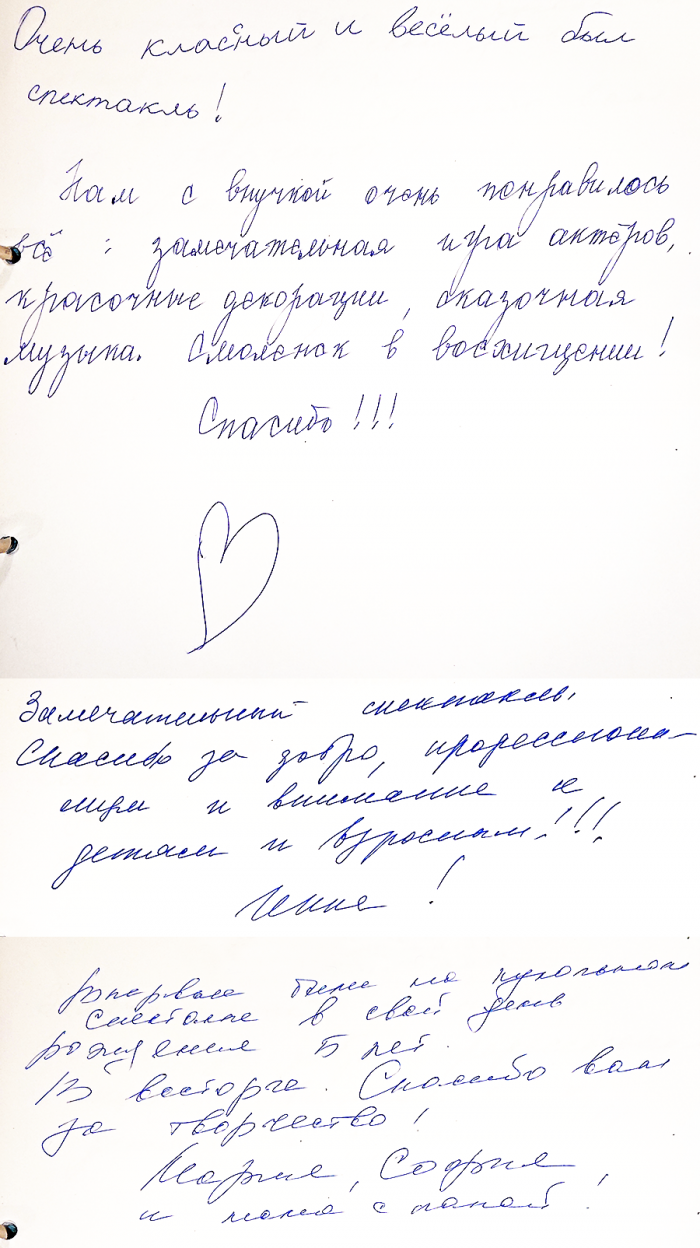 Очень классный и весёлый был
спектакль!
Нам с внучкой очень понравилось
всё : замечательная игра актёров,
красочные декорации, сказочная
музыка. Смоленск в восхищении!
Спасибо!!!
Замечательный спектакль.
Спасибо за добро, профессиона-
лизм и внимание к
детям и взрослым!!!
!
Впервые были на кукольном
спектакле в свой день
рождения 5 лет.
В восторге. Спасибо вам
за творчество!
Мария, София,
и мама с папой!